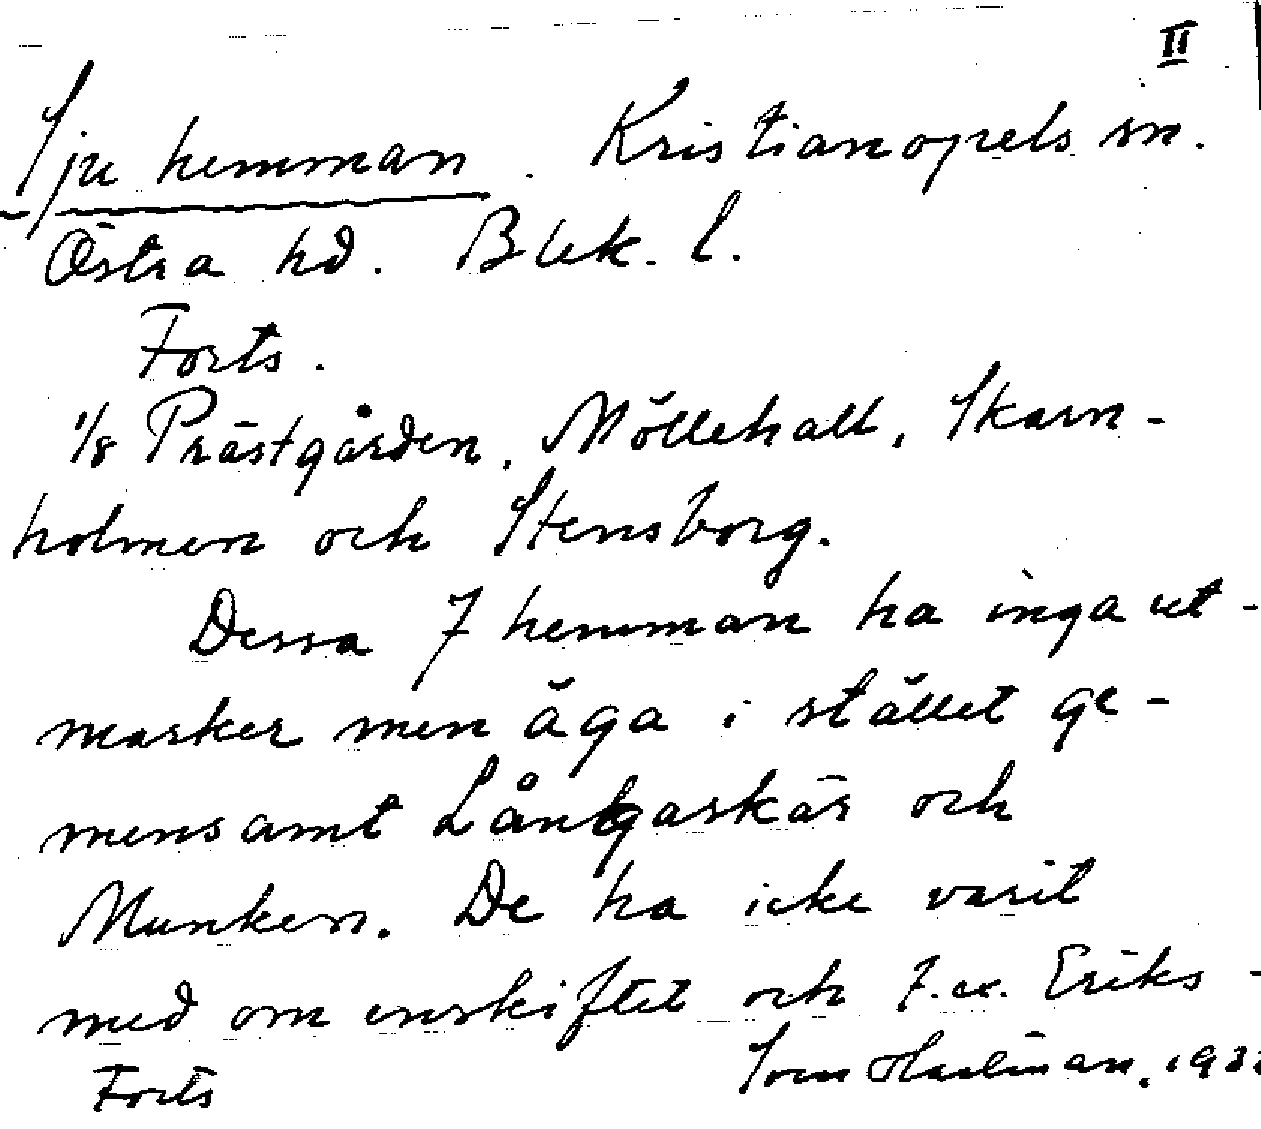 II
Sju hemman. Kristianopels sn.
Östra hd. Blek. l.
Forts.
1/8 Prästgården, Möllehall, Skarn-
holmen och Stensborg.
Dessa 7 hemman ha inga ut-
marker men äga i stället ge-
mensamt Långaskär och
Munken. De ha icke varit
med om enskiftet och t. ex. Eriks-
Forts